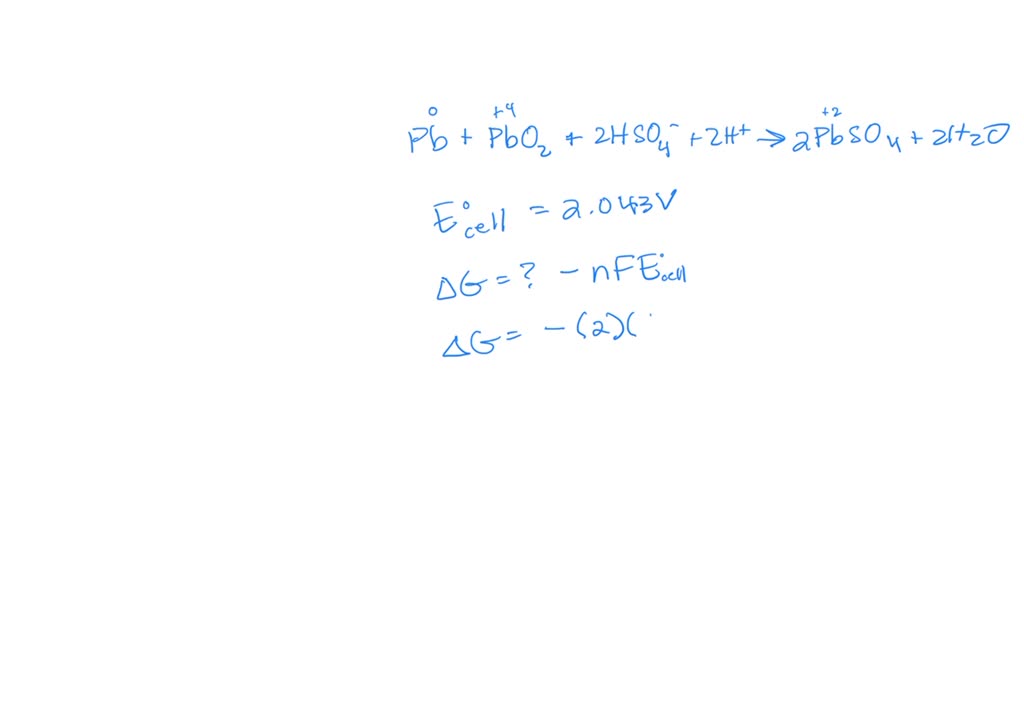 0 +4 +2
Pb + PbO₂ + 2HSO₄⁻ + 2H⁺ → 2PbSO₄ + 2H₂O
E°cell = 2.043V
ΔG = ? - nFE°cell
ΔG = - (2)(